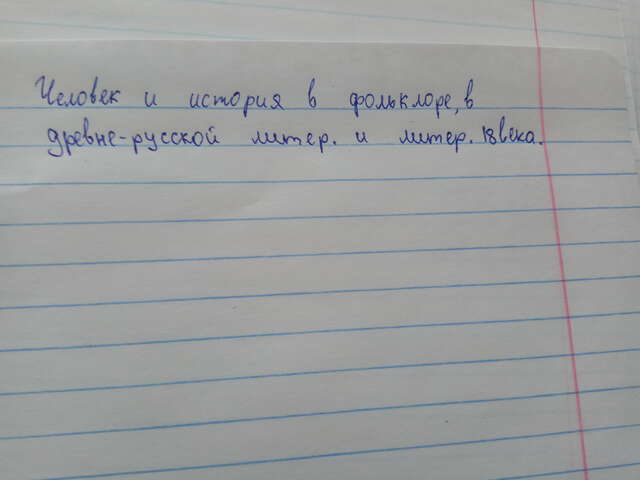 Человек и история в фольклоре, в
древне-русской литер. и литер. 18 века.